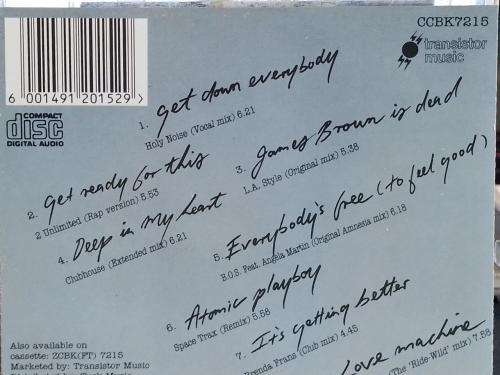 CCBK7215
transistor
music
6 001491 201529 >
COMPACT
disc
DIGITAL AUDIO
1. get down everybody
Holy Noise (Vocal mix) 6.21
2. get ready for this
2 Unlimited (Rap version) 5.53
3. James Brown is dead
L.A. Style (Original mix) 5.38
4. Deep in my heart
Clubhouse (Extended mix) 6.21
5. Everybody's free (to feel good)
E.O.S. Feat. Angela Martin (Original Amnesia mix) 6.18
6. Atomic playboy
Space Trax (Remix) 5.58
7. It's getting better
Brenda Frans (Club mix) 4.45
Love machine
(The 'Ride-Wild' mix) 7.5
Also available on
cassette: ZCBK(FT) 7215
Marketed by: Transistor Music